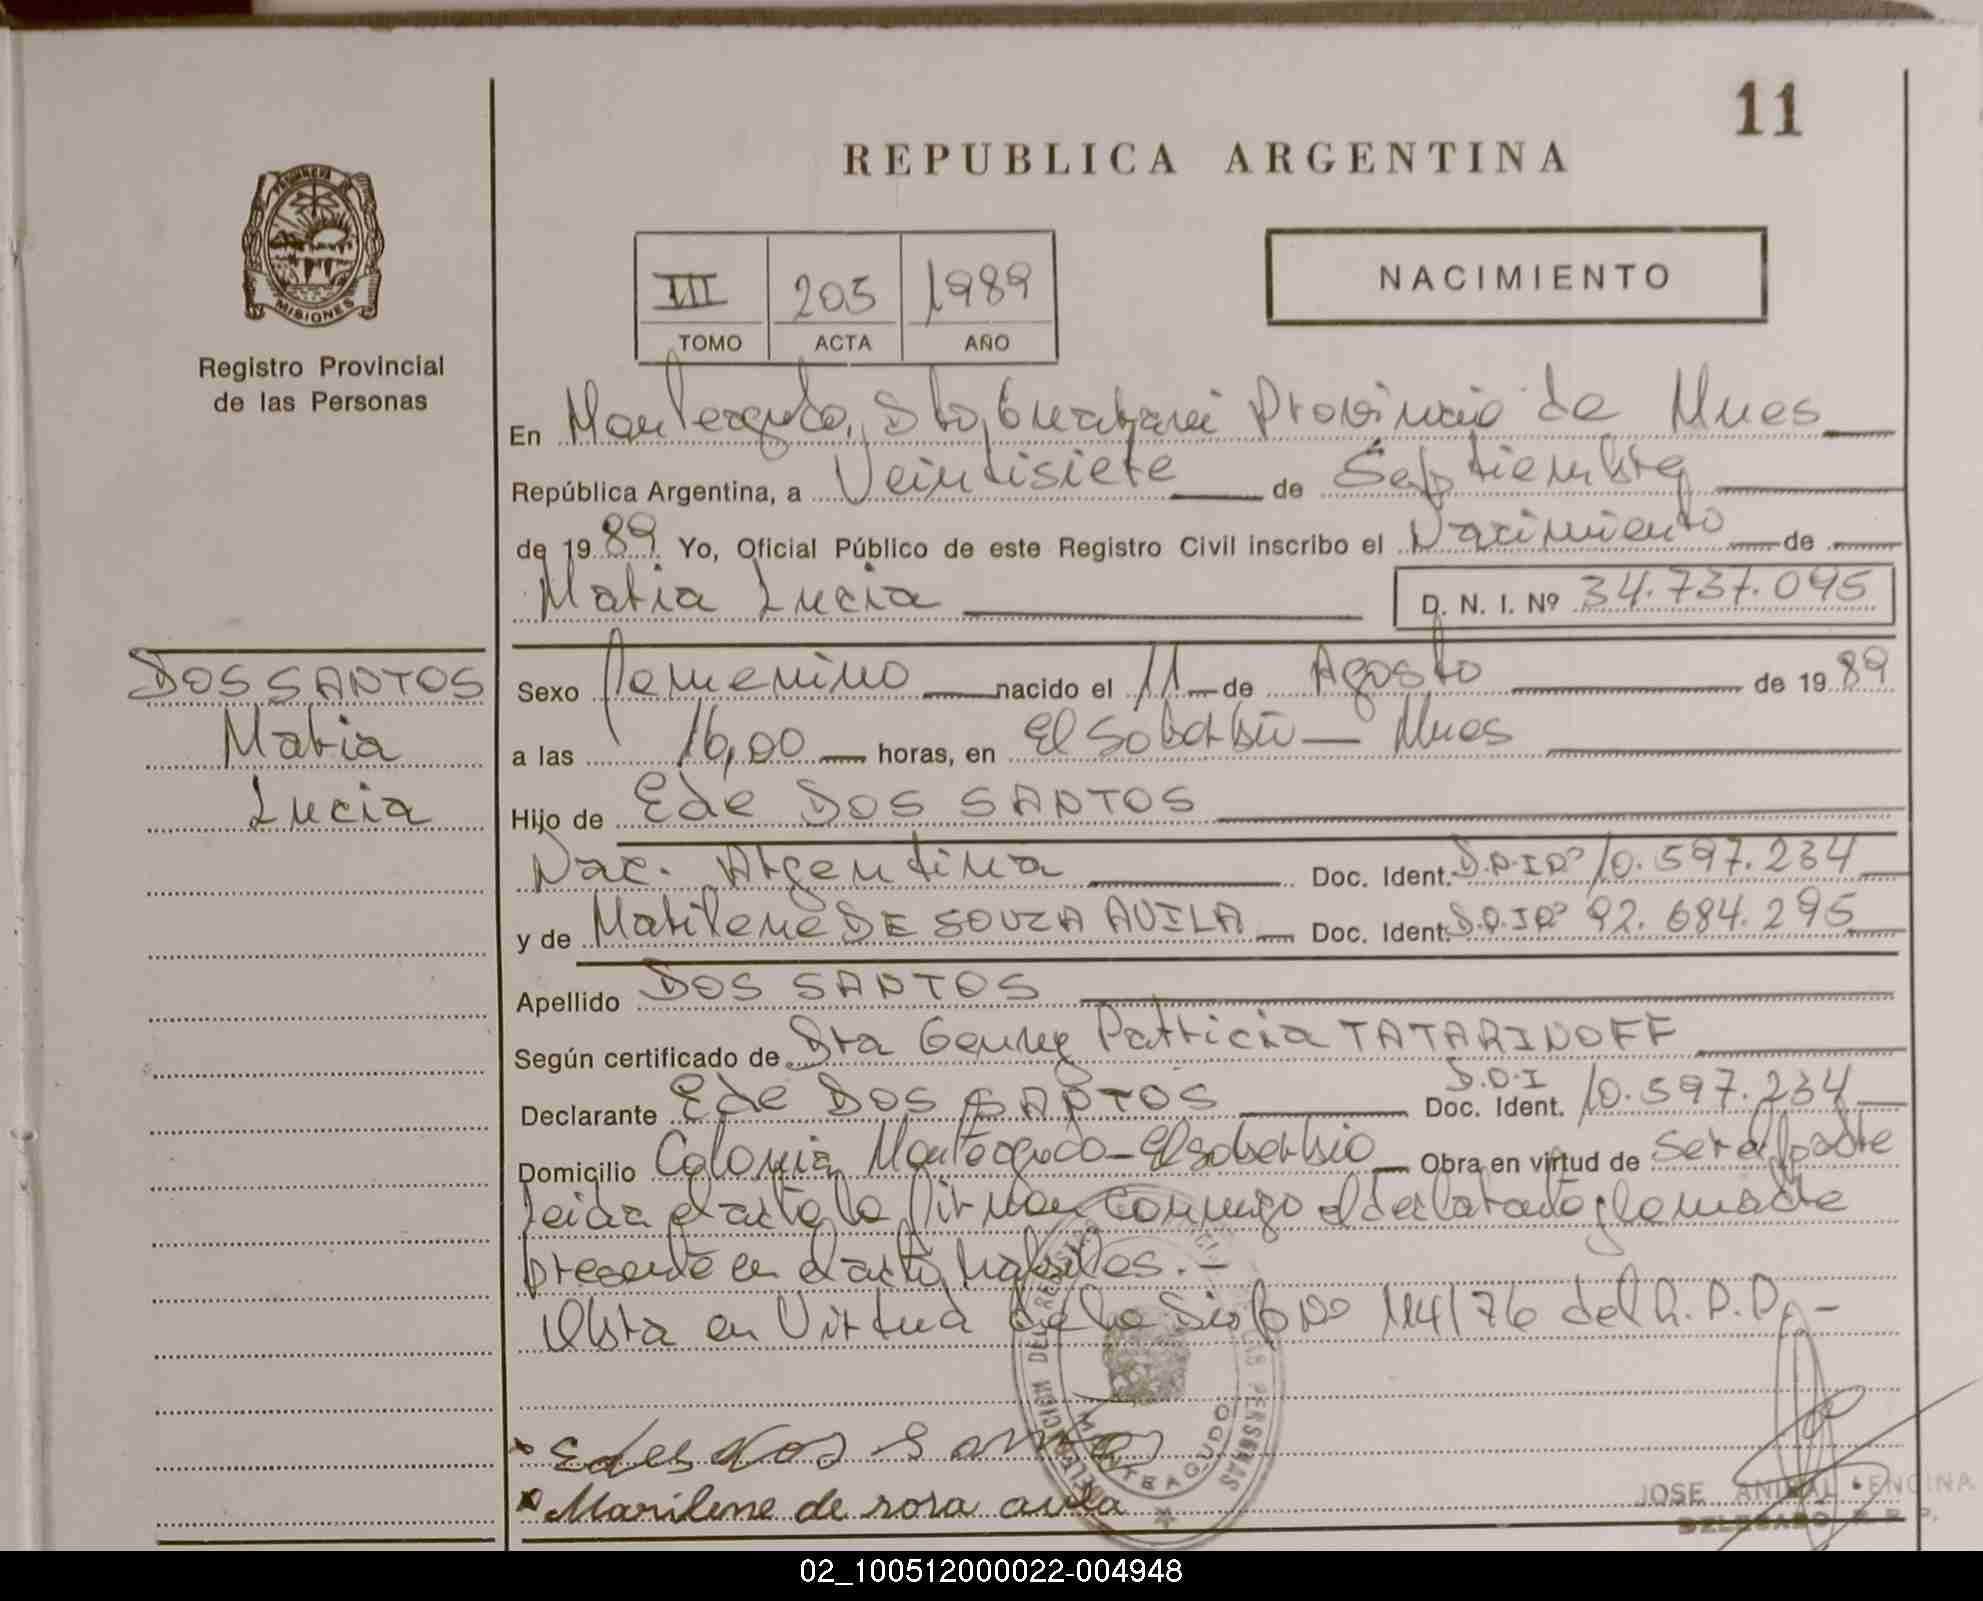 11
REPUBLICA ARGENTINA
NACIMIENTO
III 205 1989
TOMO ACTA AÑO
MISIONES
Registro Provincial
de las Personas
En Monteagudo, Dto, Guarani Provincia de Mnes
República Argentina, a Veintisiete de Septiembre
de 1989 Yo, Oficial Público de este Registro Civil inscribo el Nacimiento de
Maria Lucia D. N. I. Nº 34.737.095
DOS SANTOS
Maria
Lucia
Sexo femenino nacido el 11 de Agosto de 1989
a las 16,00 horas, en El Soberbio - Mnes
Hijo de Ede DOS SANTOS
Nac. Argentina Doc. Ident. D.N.I Nº 10.597.234
y de Marilene DE SOUZA AVILA Doc. Ident. D.N.I Nº 92.684.295
Apellido DOS SANTOS
Según certificado de Dra Genny Patricia TATARINOFF
Declarante Ede DOS SANTOS Doc. Ident. D.N.I 10.597.234
Domicilio Colonia Monteagudo - El Soberbio Obra en virtud de ser el padre
Leida el acta la firman conmigo el declarante y la madre
presente en el acto habiles.-
Obra en Virtud de la Disp Nº 114/76 del R.P.P.-
Edes dos Santos
Marilene de rosa avila
MONTEAGUDO
JOSE ANIBAL ENCINA
DELEGADO R.P.P.
02_100512000022-004948